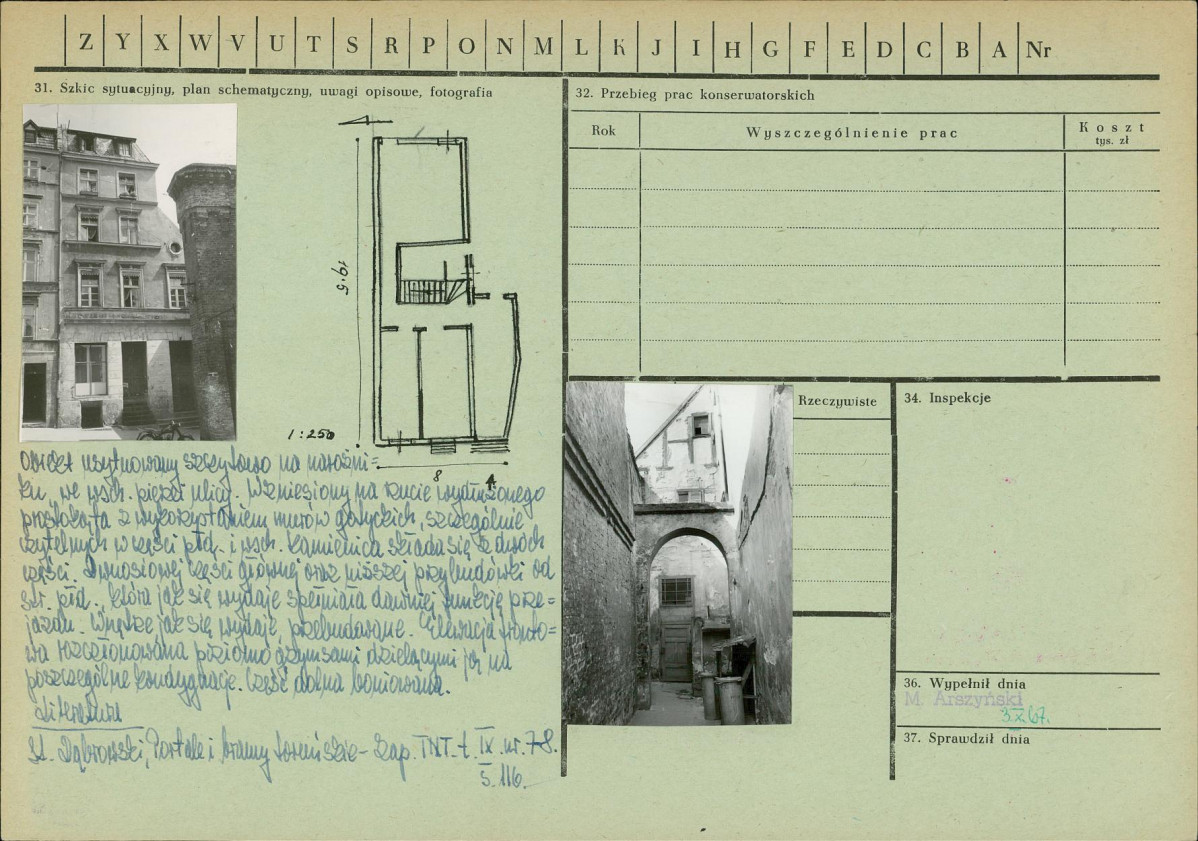 Z Y X W V U T S R P O N M L K J I H G F E D C B A Nr
31. Szkic sytuacyjny, plan schematyczny, uwagi opisowe, fotografia
19.5
1:250
8
4
Obiekt usytuowany szczytowo na narożni=
ku, we wsch. pierzei ulicy. Wzniesiony na rzucie wydłużonego
prostokąta z wykorzystaniem murów gotyckich, szczególnie
czytelnych w części płd. i wsch. Kamienica składa się z dwóch
części. Dwuosiowej części głównej oraz niższej przybudówki od
str. płd., która jak się wydaje spełniała dawniej funkcję prze=
jazdu. Wnętrze jak się wydaje, przebudowane. Elewacja fronto=
wa rozczłonowana poziomo gzymsami dzielącymi ją na
poszczególne kondygnacje. Część dolna boniowana.
Literatura
St. Dąbrowski, Portale i bramy toruńskie - Zap. TNT. t. IX. nr. 7-8.
S. 116.
32. Przebieg prac konserwatorskich
Rok
Wyszczególnienie prac
Koszt
tys. zł
Rzeczywiste
34. Inspekcje
36. Wypełnił dnia
M. Arszyński
3.X.67.
37. Sprawdził dnia